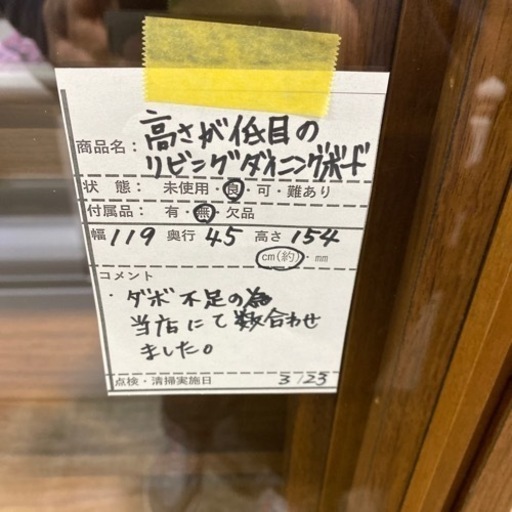 商品名: 高さが低目の
リビングダイニングボード
状 態: 未使用・良・可・難あり
付属品: 有・無・欠品
幅 119 奥行 45 高さ 154
cm(約)・mm
コメント
・ダボ不足の為
当店にて数合わせ
ました。
点検・清掃実施日 3/23